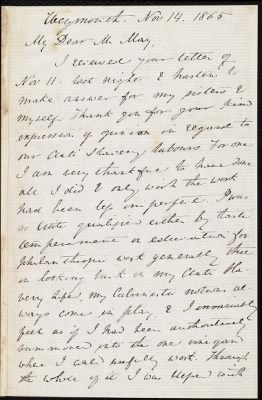 Weymouth. Nov 14, 1865
My Dear Mr May,
I received your letter of
Nov 11. last night & hasten to
make answer for my sisters &
myself. Thank you for your kind
expression of opinion in regard to
our Anti Slavery labours. For one
I am very thankful to have done
all I did & only wish the work
had been less imperfect. I was
so little qualified either by taste
temperament or education for
philanthropic work generally that
in looking back on my Anti Sla
very life, my Calvinistic notions al
ways come in play, & I invariably
feel as if I had been authoritatively
summoned into the one vineyard
where I could usefully work. Through
the whole of it I was helped with